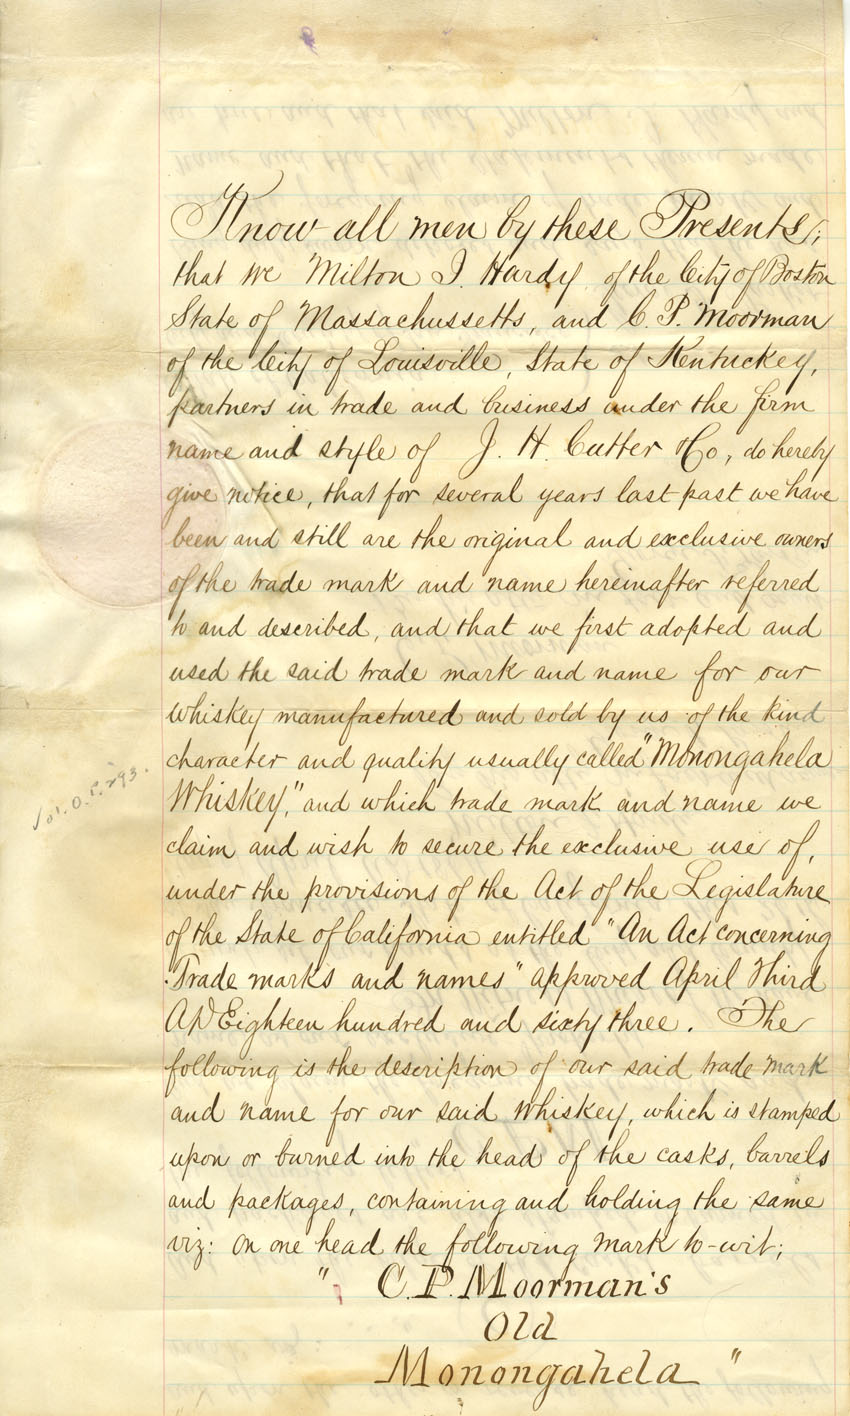 Know all men by these Presents;
that we Milton J. Hardy of the City of Boston
State of Massachussetts, and C. P. Moorman
of the City of Louisville, State of Kentuckey,
partners in trade and business under the firm
name and style of J. H. Cutter & Co, do hereby
give notice, that for several years last past we have
been and still are the original and exclusive owners
of the trade mark and name hereinafter referred
to and described, and that we first adopted and
used the said trade mark and name for our
whiskey manufactured and sold by us of the kind
character and quality usually called "Monongahela
Whiskey," and which trade mark and name we
claim and wish to secure the exclusive use of,
under the provisions of the Act of the Legislature
of the State of California entitled "An Act concerning
Trade marks and names" approved April Third
AD Eighteen hundred and sixty three. The
following is the description of our said trade mark
and name for our said Whiskey, which is stamped
upon or burned into the head of the casks, barrels
and packages, containing and holding the same
viz: On one head the following mark to-wit;
" C. P. Moorman's
Old
Monongahela "